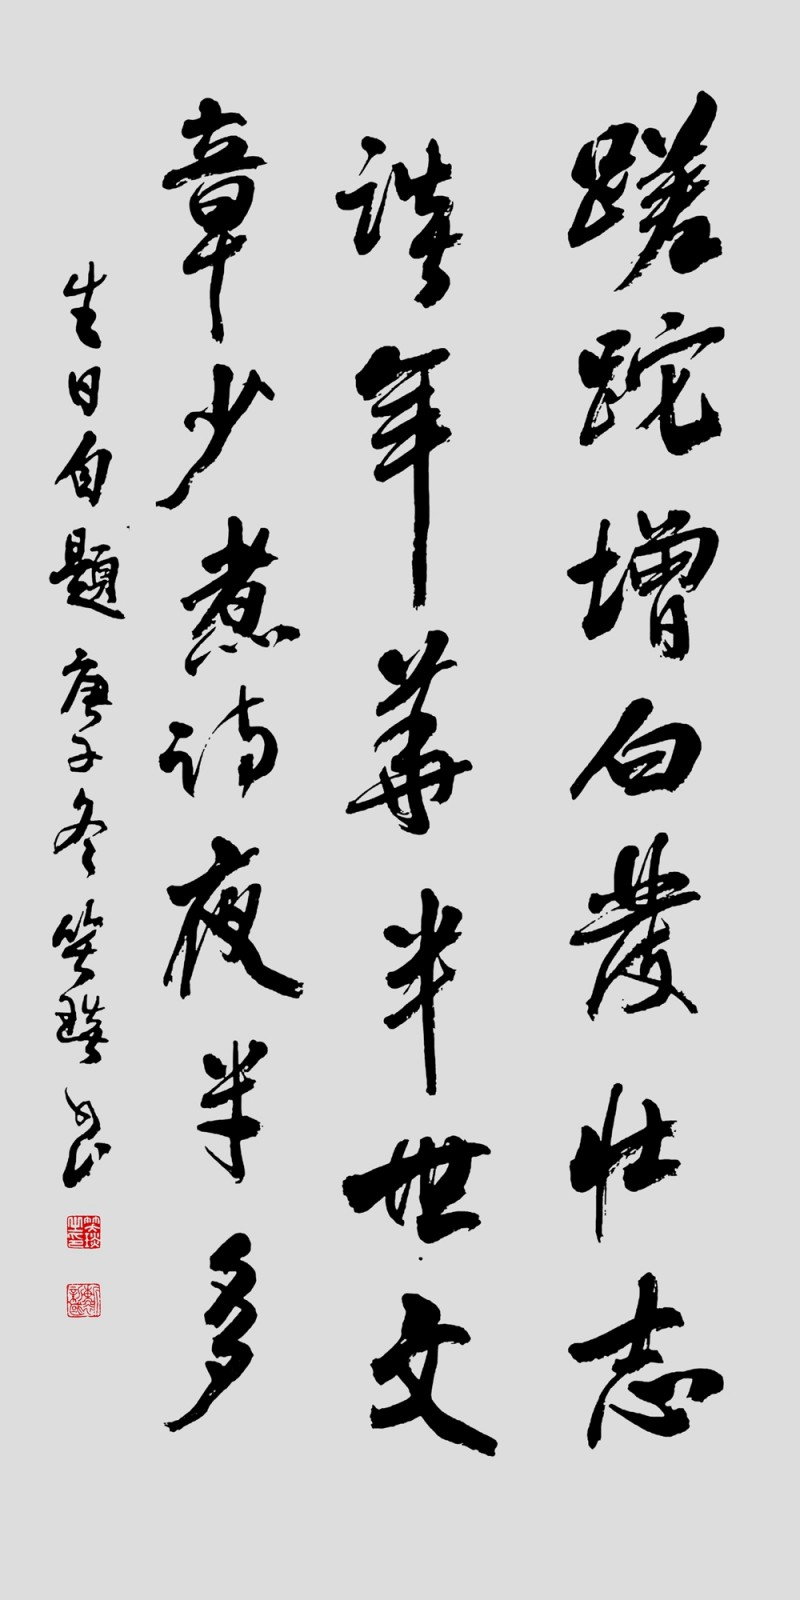 蹉跎增白发壮志
误年华半世文
章少煮诗夜半多
生日自题庚子冬笑琰书